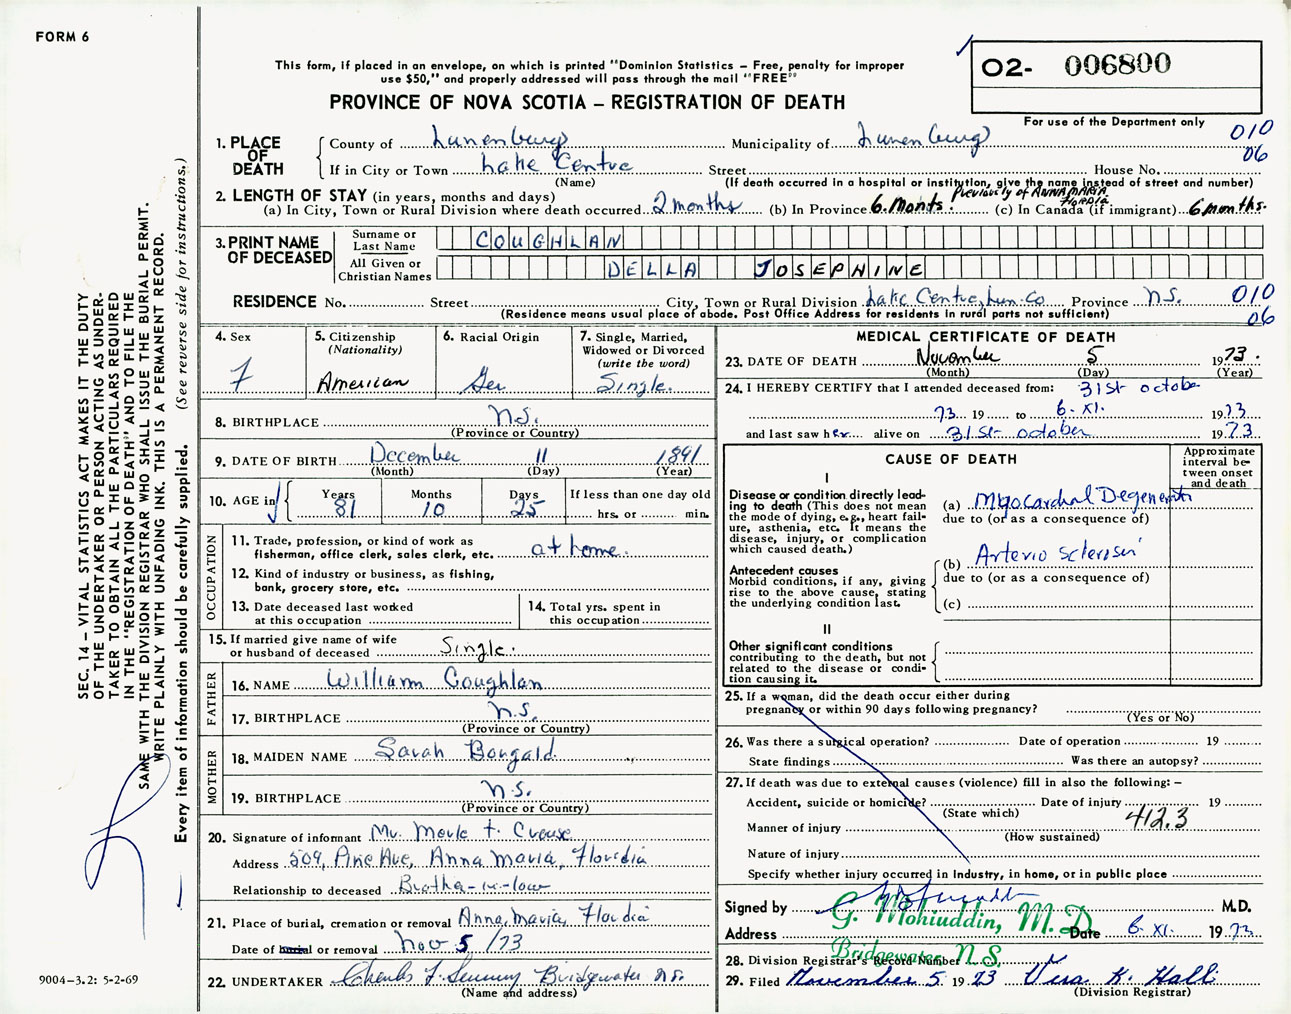 FORM 6
This form, if placed in an envelope, on which is printed "Dominion Statistics – Free, penalty for improper
use $50," and properly addressed will pass through the mail "FREE"
PROVINCE OF NOVA SCOTIA – REGISTRATION OF DEATH
O2- 006800
For use of the Department only
010
06
1. PLACE OF DEATH
County of Lunenburg Municipality of Lunenburg
If in City or Town Lake Centre Street House No.
(Name) (If death occurred in a hospital or institution, give the name instead of street and number)
2. LENGTH OF STAY (in years, months and days) Previously of ANNA MARIA
(a) In City, Town or Rural Division where death occurred 2 months (b) In Province 6. Monts. (c) In Canada (if immigrant) 6 months.
3. PRINT NAME OF DECEASED
Surname or Last Name COUGHLAN
All Given or Christian Names DELLA JOSEPHINE
RESIDENCE No. Street City, Town or Rural Division Lake Centre, Lun. Co Province N.S. 010
(Residence means usual place of abode. Post Office Address for residents in rural parts not sufficient) 06
4. Sex F
5. Citizenship (Nationality) American
6. Racial Origin Ger
7. Single, Married, Widowed or Divorced (write the word) Single.
8. BIRTHPLACE N.S.
(Province or Country)
9. DATE OF BIRTH December 11 1891
(Month) (Day) (Year)
10. AGE in Years 81 Months 10 Days 25 If less than one day old hrs. or min.
OCCUPATION
11. Trade, profession, or kind of work as fisherman, office clerk, sales clerk, etc. at home.
12. Kind of industry or business, as fishing, bank, grocery store, etc.
13. Date deceased last worked at this occupation
14. Total yrs. spent in this occupation
15. If married give name of wife or husband of deceased Single.
FATHER
16. NAME William Coughlan
17. BIRTHPLACE N.S.
(Province or Country)
MOTHER
18. MAIDEN NAME Sarah Bongald
19. BIRTHPLACE N.S.
(Province or Country)
20. Signature of informant Mr. Merle t. Crouse
Address 509, Pine Ave, Anna Maria, Floridia
Relationship to deceased Brother-in-law
21. Place of burial, cremation or removal Anna, Maria, Floridia
Date of burial or removal Nov 5 /73
22. UNDERTAKER Bridgewater N.S.
(Name and address)
MEDICAL CERTIFICATE OF DEATH
23. DATE OF DEATH November 5 1973.
(Month) (Day) (Year)
24. I HEREBY CERTIFY that I attended deceased from: 31st october
73 19 to 6. XI. 1973
and last saw her alive on 31st october 1973
CAUSE OF DEATH
Approximate interval between onset and death
I
Disease or condition directly leading to death (This does not mean the mode of dying, e.g., heart failure, asthenia, etc. It means the disease, injury, or complication which caused death.)
(a) Myocardial Degenerati
due to (or as a consequence of)
Antecedent causes
Morbid conditions, if any, giving rise to the above cause, stating the underlying condition last.
(b) Arterio sclerosis
due to (or as a consequence of)
(c)
II
Other significant conditions
contributing to the death, but not related to the disease or condition causing it.
25. If a woman, did the death occur either during
pregnancy or within 90 days following pregnancy?
(Yes or No)
26. Was there a surgical operation? Date of operation 19
State findings Was there an autopsy?
27. If death was due to external causes (violence) fill in also the following: –
Accident, suicide or homicide? Date of injury 19
(State which) 412.3
Manner of injury
(How sustained)
Nature of injury
Specify whether injury occurred in industry, in home, or in public place
Signed by M.D.
G. Mohiuddin, M.D.
Address Date 6. XI. 1973
Bridgewater, N.S.
28. Division Registrar's Record Number
29. Filed November 5 1973 Vera K. Hall
(Division Registrar)
SEC. 14 – VITAL STATISTICS ACT MAKES IT THE DUTY
OF THE UNDERTAKER OR PERSON ACTING AS UNDER-
TAKER TO OBTAIN ALL THE PARTICULARS REQUIRED
IN THE "REGISTRATION OF DEATH" AND TO FILE THE
SAME WITH THE DIVISION REGISTRAR WHO SHALL ISSUE THE BURIAL PERMIT.
WRITE PLAINLY WITH UNFADING INK. THIS IS A PERMANENT RECORD.
Every item of information should be carefully supplied. (See reverse side for instructions.)
9004–3.2: 5-2-69